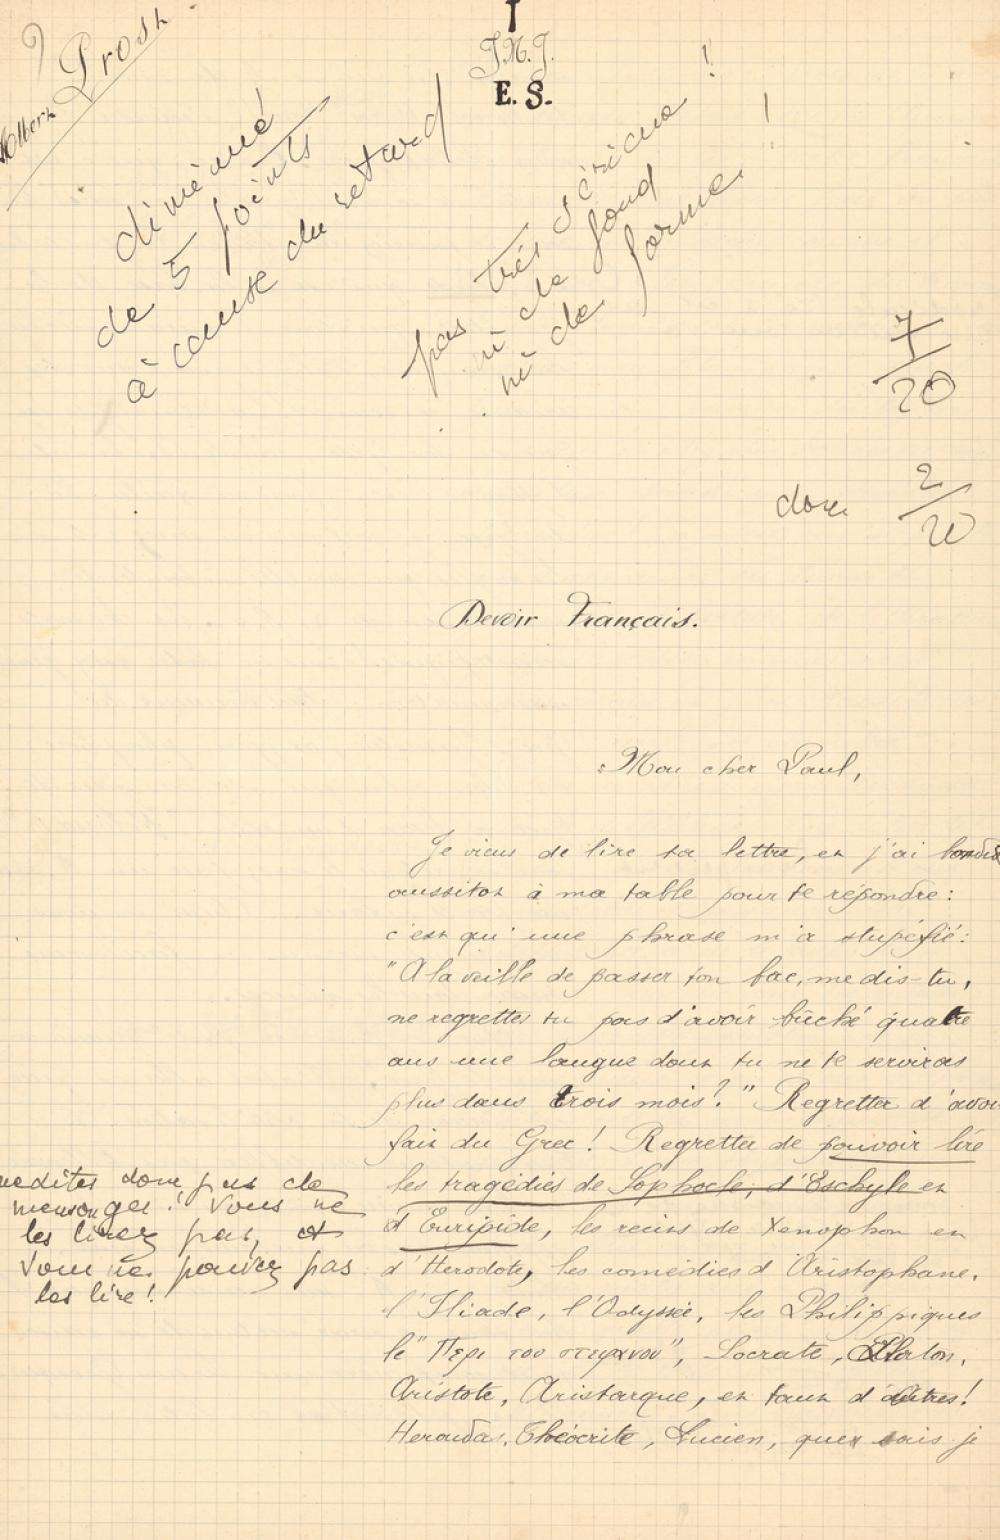 Albert Prost
J.M.J.
E. S.
diminué
de 5 points
à cause du retard
pas très sérieux !
ni de fond
ni de forme !
7/20
donc 2/20
Devoir Français.
Mon cher Paul,
Je viens de lire ta lettre, et j'ai bondi
aussitôt à ma table pour te répondre :
c'est qu'une phrase m'a stupéfié :
"A la veille de passer ton bac, me dis-tu,
ne regrettes tu pas d'avoir bûché quatre
ans une langue dont tu ne te serviras
plus dans trois mois ?" Regretter d'avoir
fait du Grec ! Regretter de pouvoir lire
les tragédies de Sophocle, d'Eschyle et
d'Euripide, les récits de Xenophon et
d'Herodote, les comédies d'Aristophane,
l'Iliade, l'Odyssée, les Philippiques
le "Περι του στεφανου", Socrate, Platon,
Aristote, Aristarque, et tant d'autres !
Herondas, Théocrite, Lucien, que sais je
ne dites donc pas de
mensonges ! Vous ne
les lirez pas, et
vous ne pouvez pas
les lire !